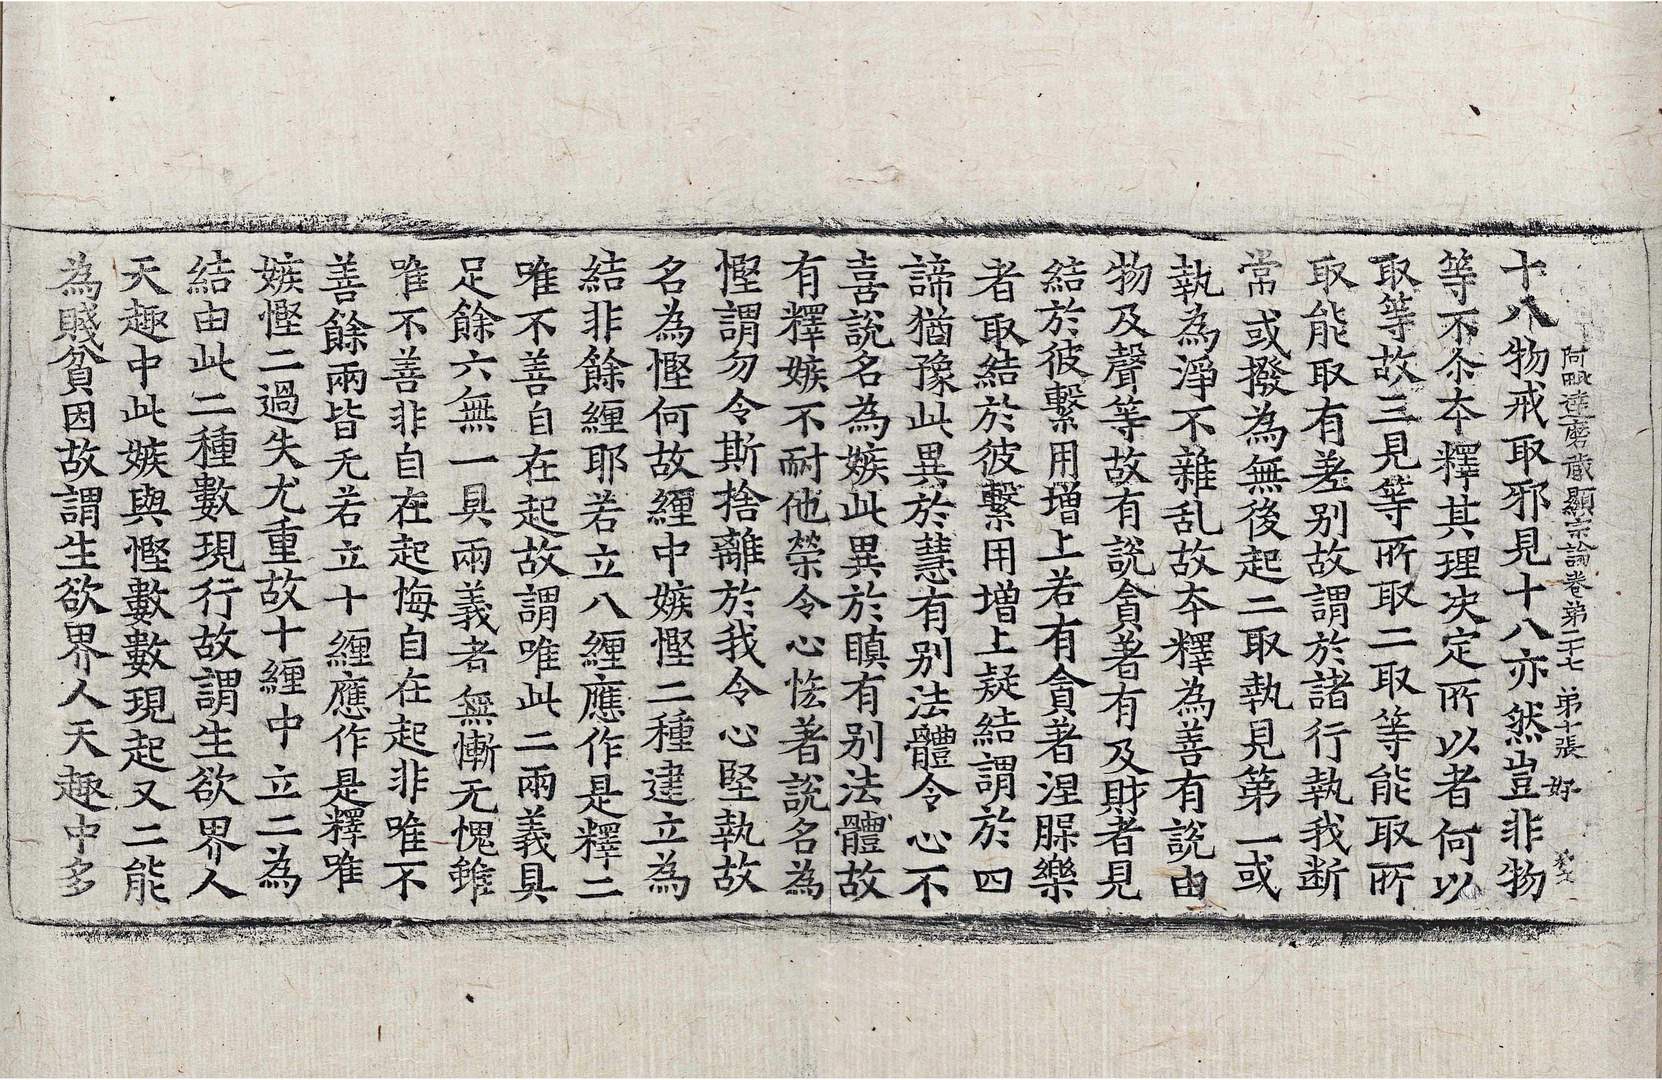 阿毗達磨藏顯宗論卷第二十七 第十張 好
十八物戒取邪見十八亦然豈非物
等不尒本釋其理決定所以者何以
取等故三見等所取二取等能取所
取能取有差別故謂於諸行執我斷
常或撥為無後起二取執見第一或
執為淨不雜乱故本釋為善有說由
物及聲等故有說貪著有及財者見
結於彼繫用增上若有貪著涅槃樂
者取結於彼繫用增上疑結謂於四
諦猶豫此異於慧有別法體令心不
喜說名為嫉此異於瞋有別法體故
有釋嫉不耐他榮令心恡著說名為
慳謂勿令斯捨離於我令心堅執故
名為慳何故纏中嫉慳二種建立為
結非餘纏耶若立八纏應作是釋二
唯不善自在起故謂唯此二兩義具
足餘六無一具兩義者無慚无愧雖
唯不善非自在起悔自在起非唯不
善餘兩皆无若立十纏應作是釋唯
嫉慳二過失尤重故十纏中立二為
結由此二種數現行故謂生欲界人
天趣中此嫉與慳數數現起又二能
為賤貧因故謂生欲界人天趣中多